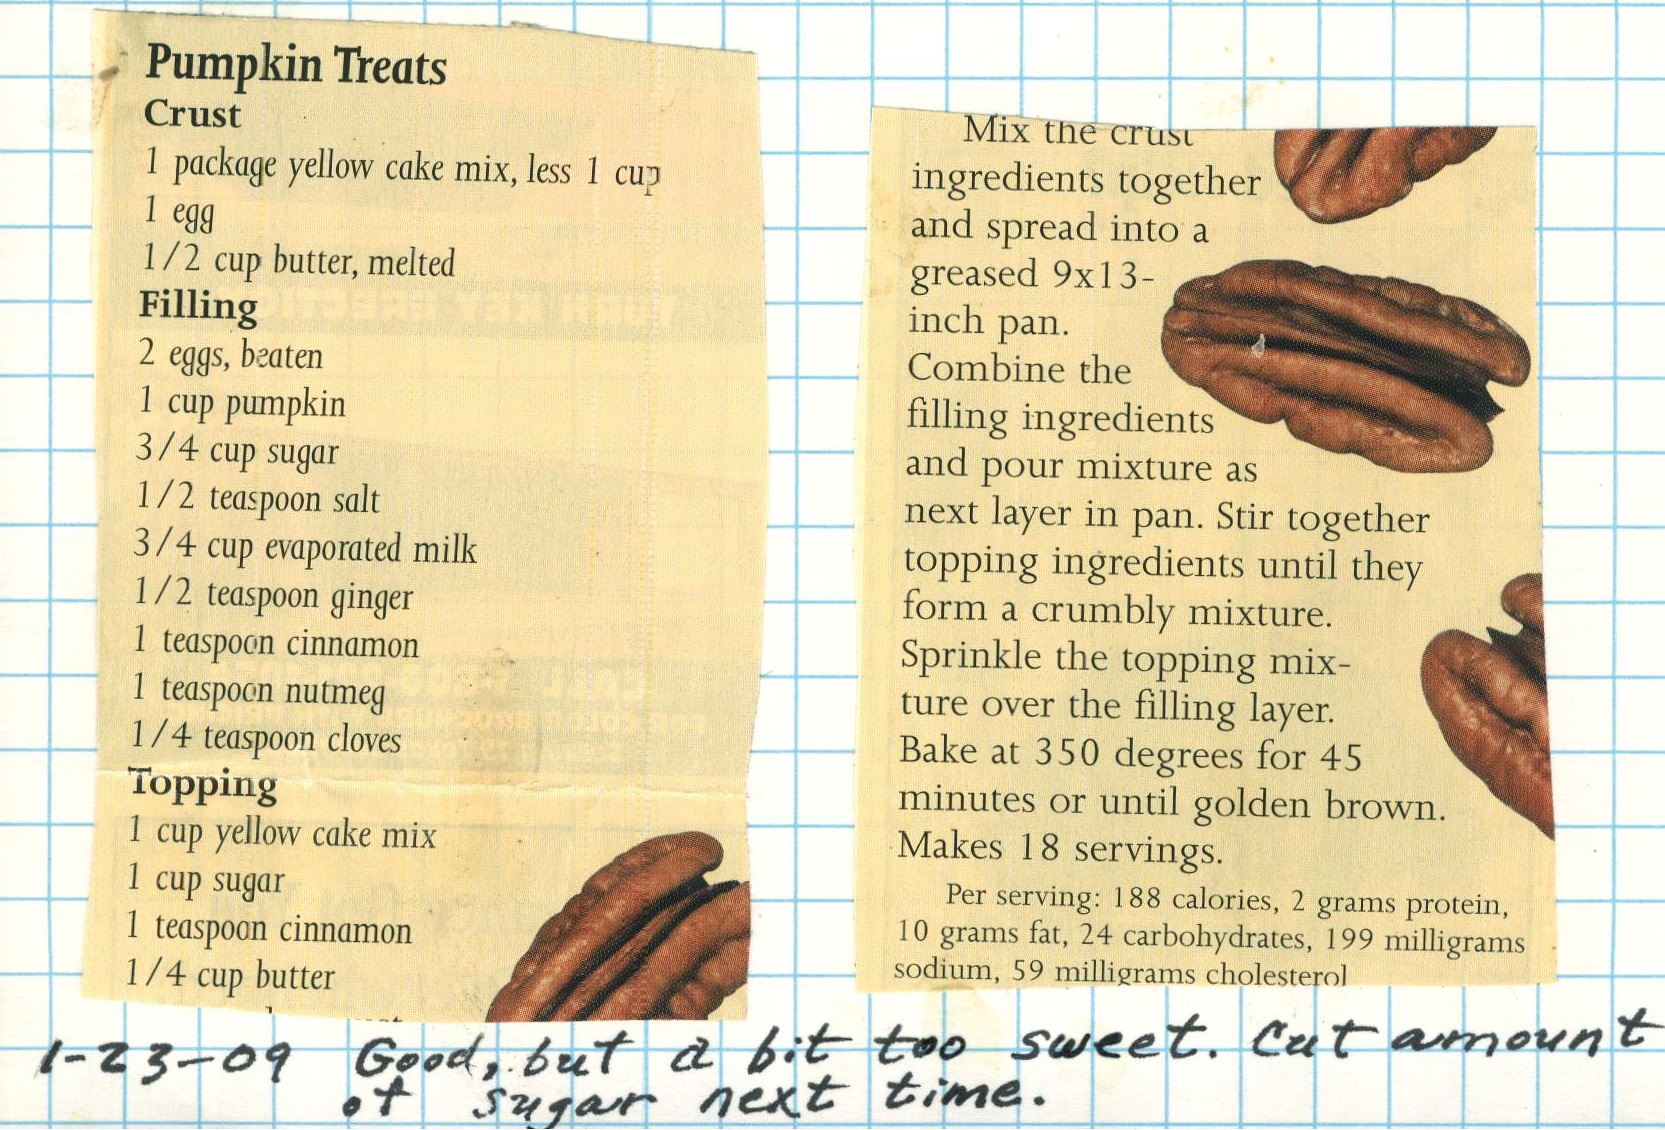 Pumpkin Treats
Crust
1 package yellow cake mix, less 1 cup
1 egg
1/2 cup butter, melted
Filling
2 eggs, beaten
1 cup pumpkin
3/4 cup sugar
1/2 teaspoon salt
3/4 cup evaporated milk
1/2 teaspoon ginger
1 teaspoon cinnamon
1 teaspoon nutmeg
1/4 teaspoon cloves
Topping
1 cup yellow cake mix
1 cup sugar
1 teaspoon cinnamon
1/4 cup butter
Mix the crust
ingredients together
and spread into a
greased 9x13-
inch pan.
Combine the
filling ingredients
and pour mixture as
next layer in pan. Stir together
topping ingredients until they
form a crumbly mixture.
Sprinkle the topping mix-
ture over the filling layer.
Bake at 350 degrees for 45
minutes or until golden brown.
Makes 18 servings.
Per serving: 188 calories, 2 grams protein,
10 grams fat, 24 carbohydrates, 199 milligrams
sodium, 59 milligrams cholesterol
1-23-09 Good, but a bit too sweet. Cut amount
of sugar next time.